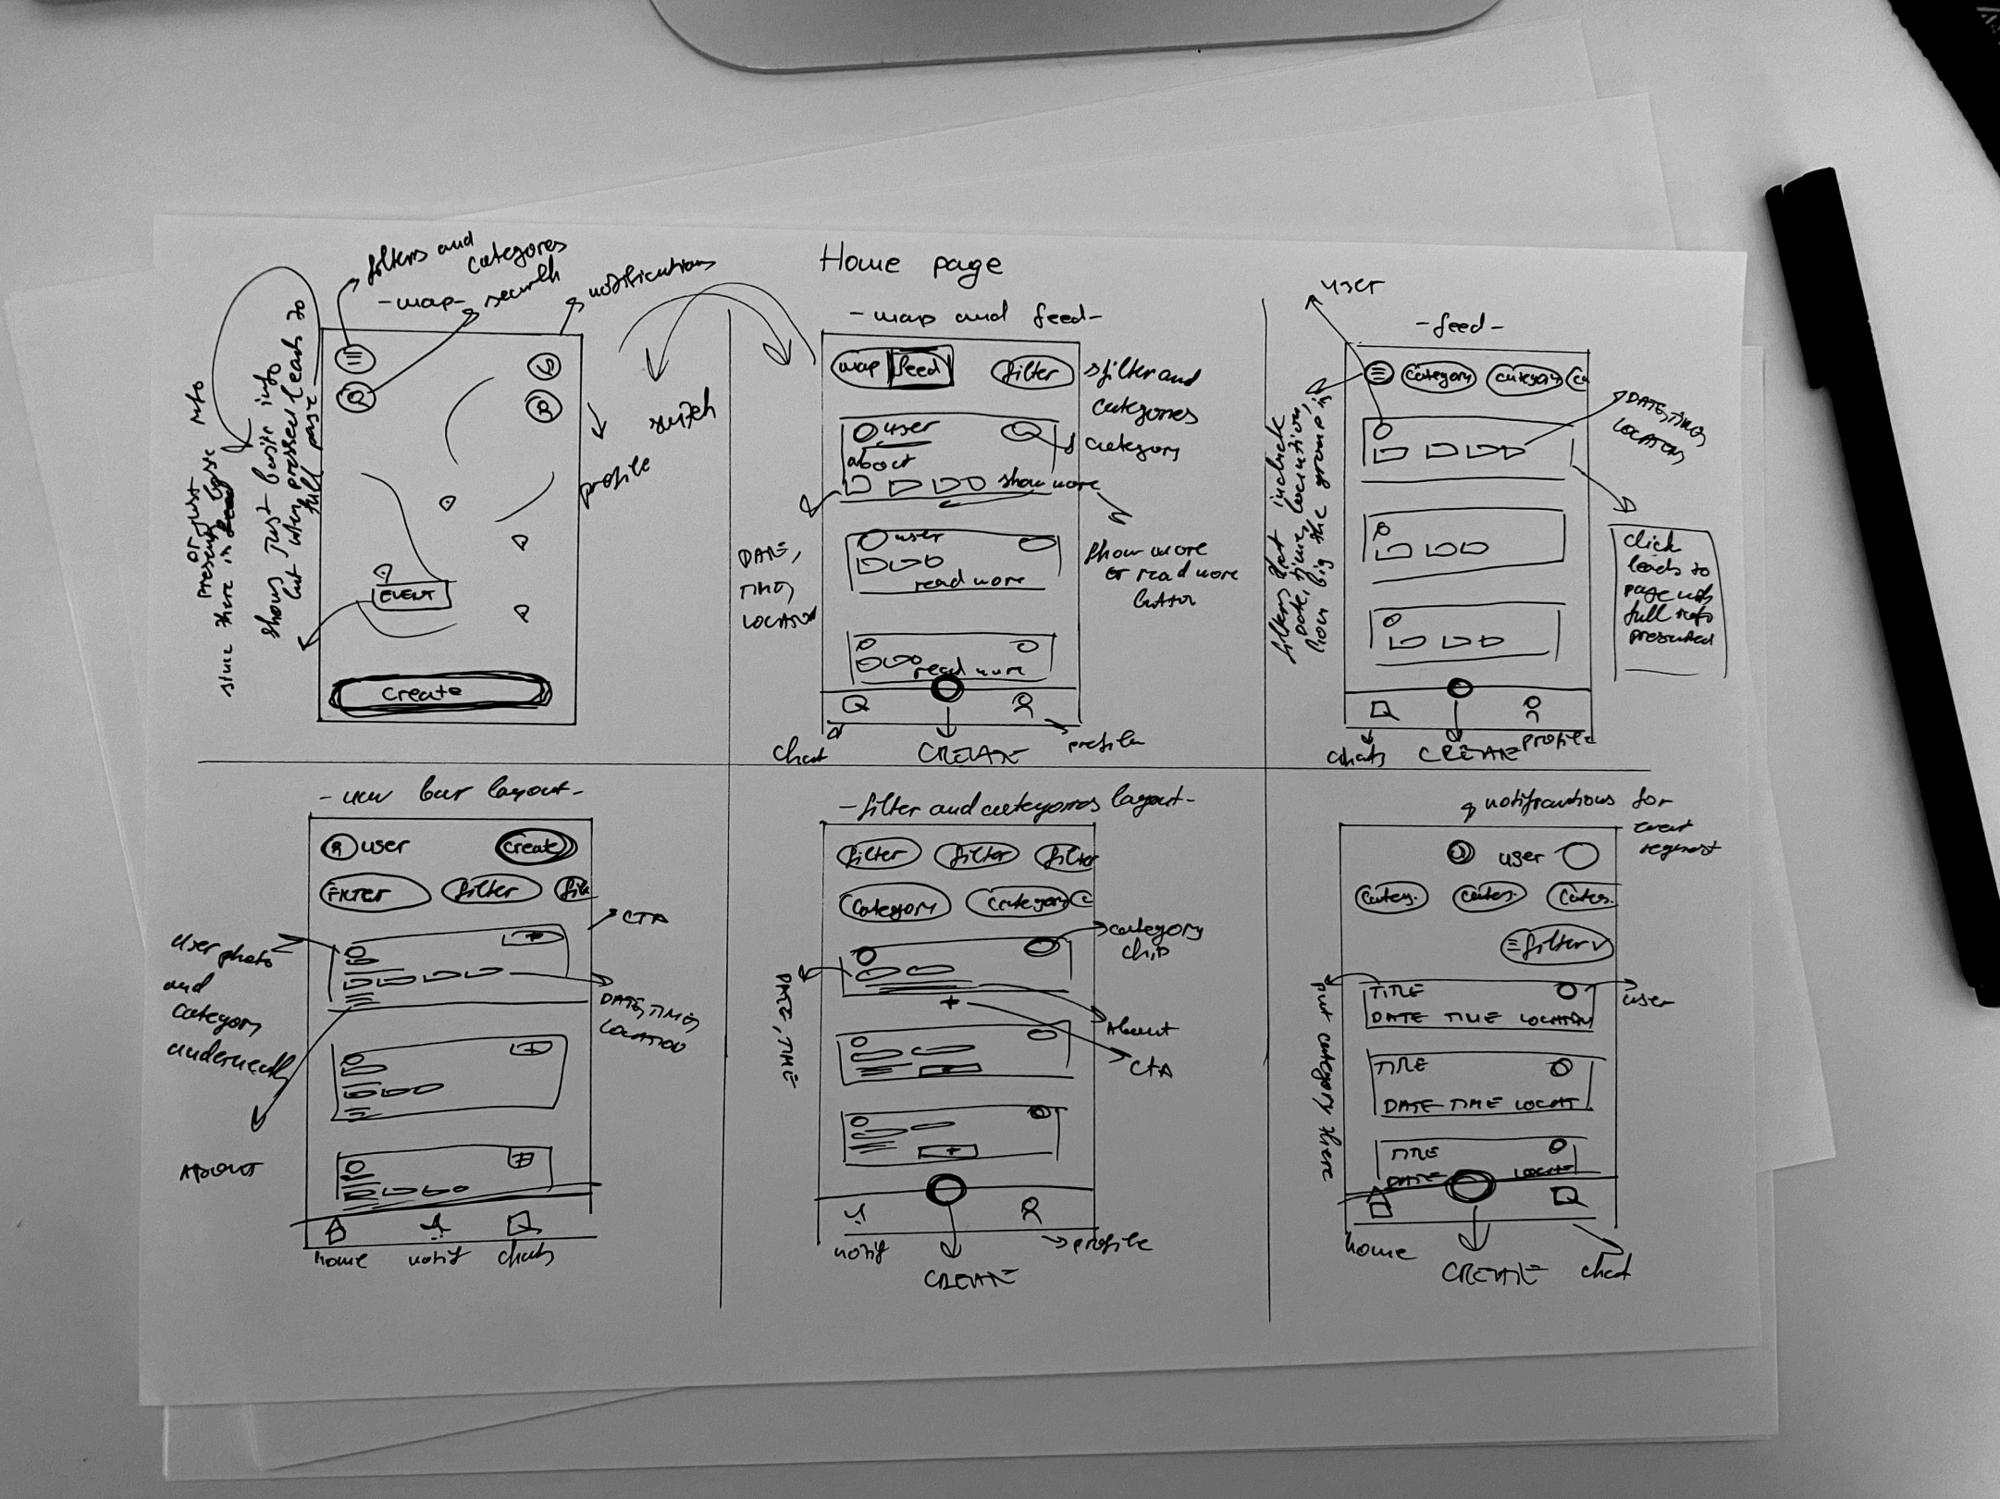 Home page
filters and
categores
- map -
search
notifications
switch
profile
shows just basic info
but when pressed leads to
full page
or just
present
since there is feed
EVENT
Create
- map and feed -
map
feed
filter
filter and
categories
category
user
about
show more
DATE,
TIME,
LOCATION
user
read more
show more
or read more
button
read more
chat
CREATE
profile
- feed -
user
category
category
Ca
DATE, TIME,
LOCATION
filters that include
Date, time, location,
how big the group is
click
leads to
page with
full info
presented
chats
CREATE
profile
- nav bar layout -
user
create
FILTER
filter
filt
CTA
user photo
and
category
underneath
DATE, TIME,
LOCATION
ABOUT
home
notif
chats
- filter and categories layout -
filter
filter
filter
Category
Category
C
category
chip
DATE, TIME
+
About
CTA
notif
CREATE
profile
notifications for
event
request
user
categ.
categ.
categ.
filter
TITLE
DATE TIME LOCATION
user
put category there
TITLE
DATE TIME LOCAT
TITLE
DATE
LOCATI
home
CREATE
chat